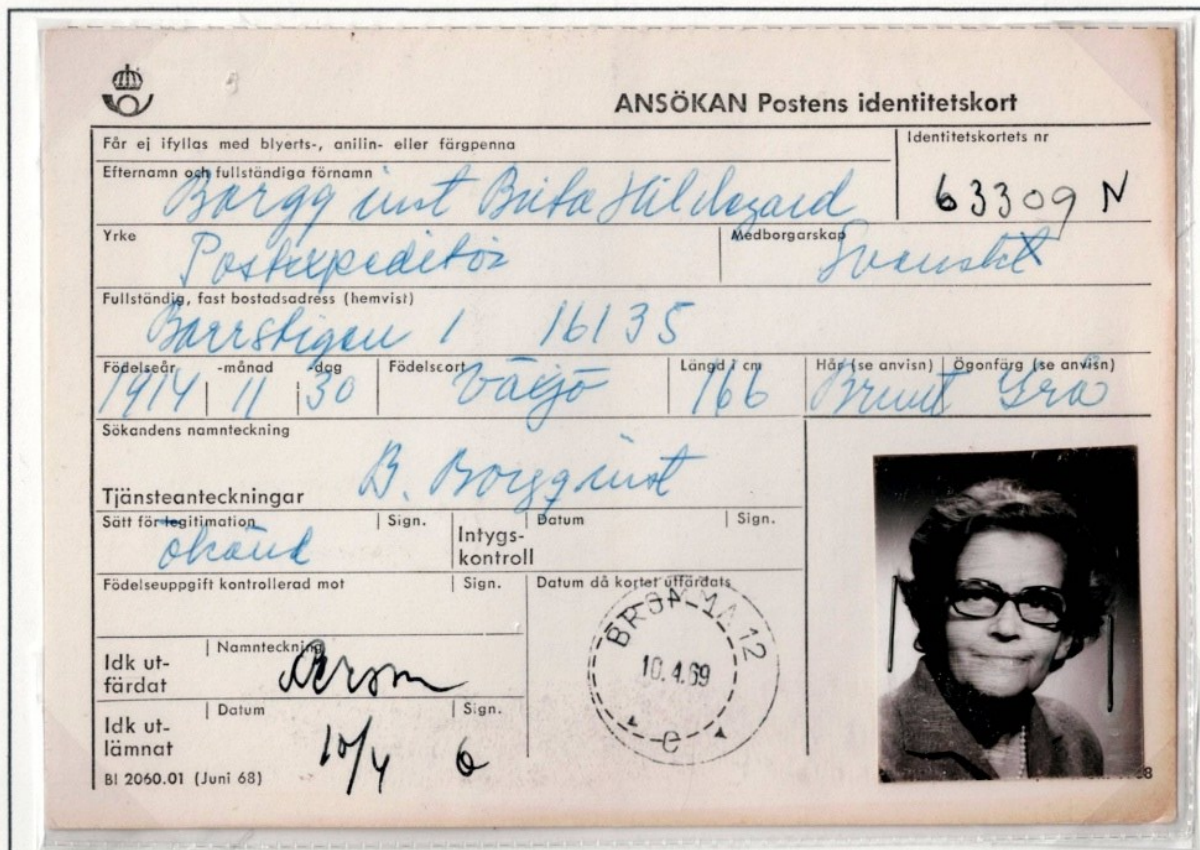 ANSÖKAN Postens identitetskort
Får ej ifyllas med blyerts-, anilin- eller färgpenna
Identitetskortets nr
63309 N
Efternamn och fullständiga förnamn
Borgquist Brita Hildegard
Yrke
Postexpeditör
Medborgarskap
Svenskt
Fullständig, fast bostadsadress (hemvist)
Barrstigen 1 16135
Födelseår -månad -dag
1914 11 30
Födelseort
Växjö
Längd i cm
166
Hår (se anvisn)
Brunt
Ögonfärg (se anvisn)
Grå
Sökandens namnteckning
B. Borgquist
Tjänsteanteckningar
Sätt för legitimation Sign.
Intygs-
kontroll
Datum Sign.
Födelseuppgift kontrollerad mot Sign.
Datum då kortet utfärdats
BROMMA 12
10.4.69
e
Idk ut-
färdat
Namnteckning
Idk ut-
lämnat
Datum Sign.
10/4
Bl 2060.01 (Juni 68)